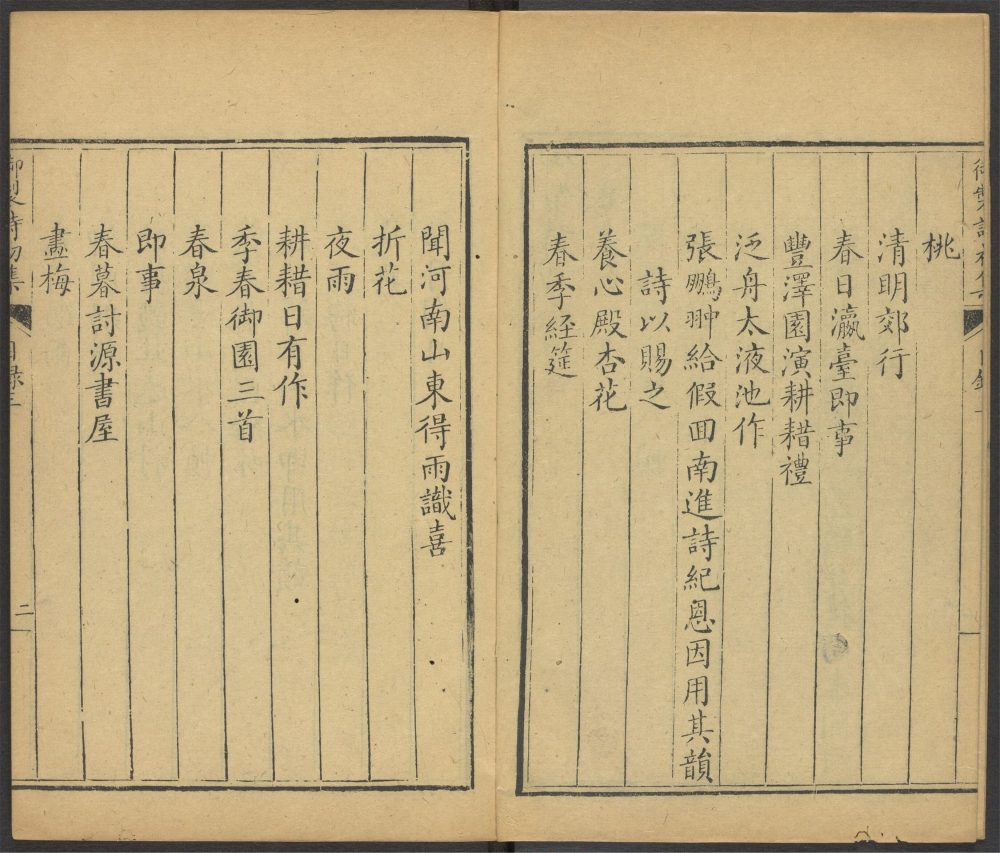 御製詩初集 目錄
桃
清明郊行
春日瀛臺即事
豐澤園演耕耤禮
泛舟太液池作
張鵬翀給假囬南進詩紀恩因用其韻
詩以賜之
養心殿杏花
春季経筵
聞河南山東得雨識喜
折花
夜雨
耕耤日有作
季春御園三首
春泉
即事
春暮討源書屋
畫梅
御製詩初集 目錄 二